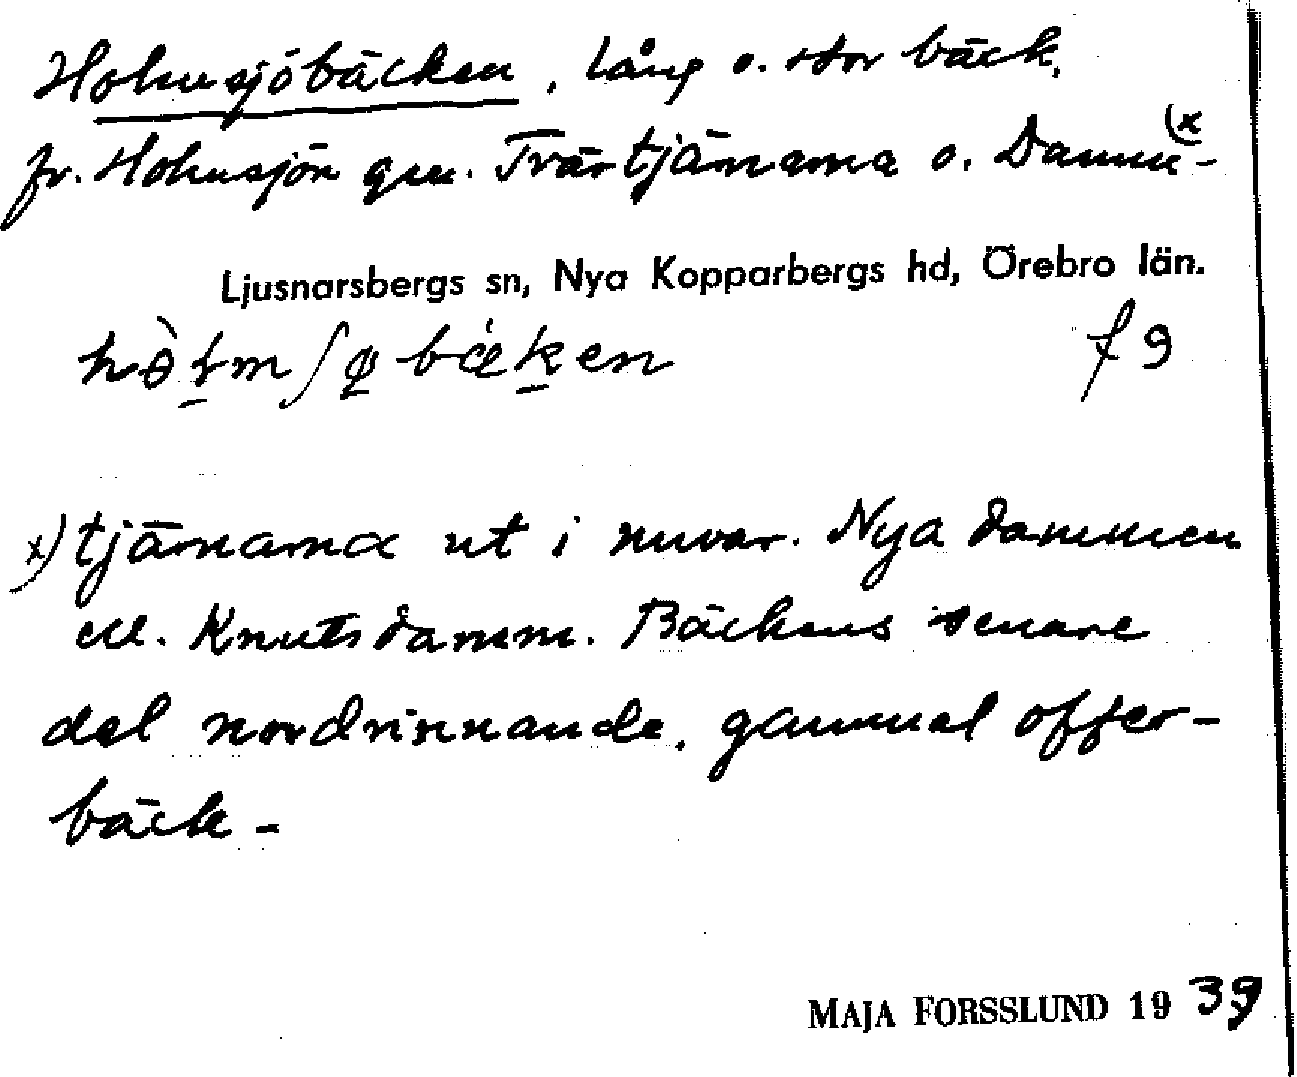 Holmsjöbäcken, lång o. stor bäck,
fr. Holmsjön gm. Tvärtjärnarna o. Damm- (x
Ljusnarsbergs sn, Nya Kopparbergs hd, Örebro län.
f 9
x) tjärnarna ut i nuvar. Nya dammen
ell. Knutsdamm. Bäckens senare
del nordrinnande, gammal offer-
bäck -
MAJA FORSSLUND 19 39